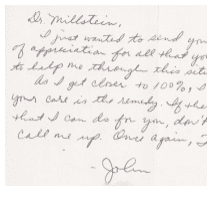 Dr. Millstein,
I just wanted to send you
of appreciation for all that you
to help me through this
As I get closer to 100%, I
your care is the remedy. If the
that I can do for you, don't
call me up. Once again,
- John